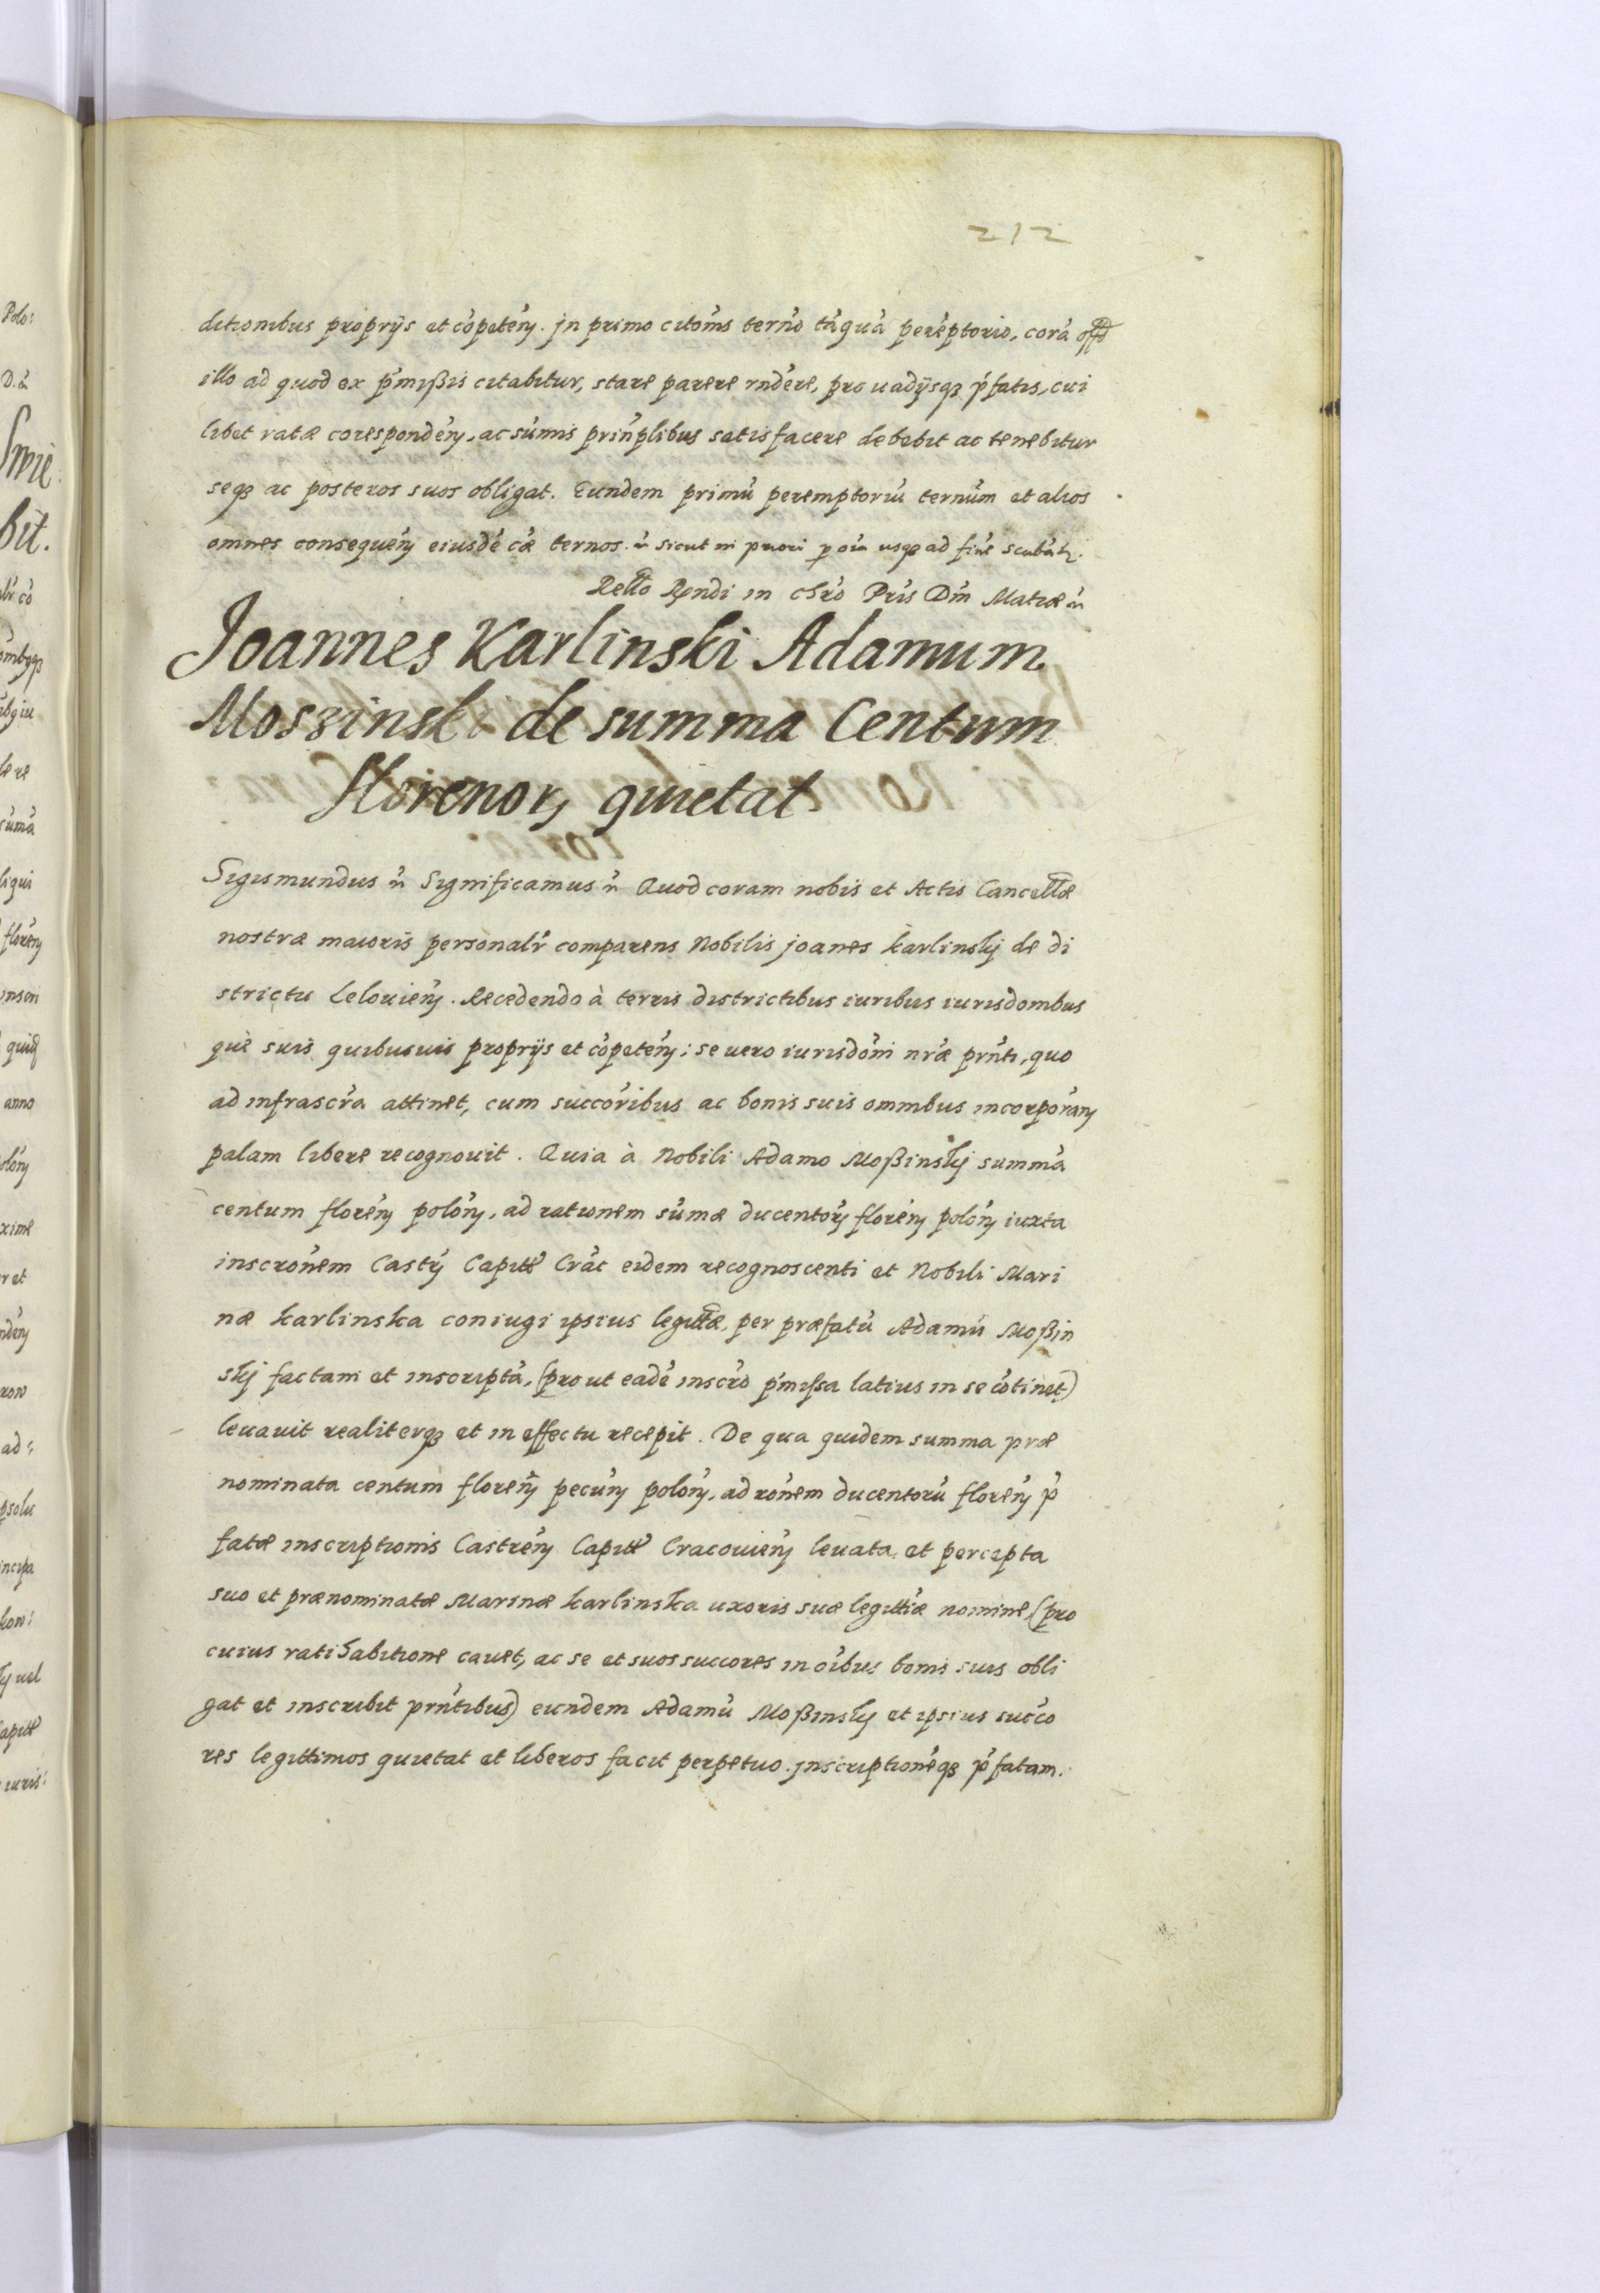 212
ditionibus proprijs et cõpeteñ. jn primo citõnis termõ tãquã perẽptorio, corã offõ
illo ad quod ex p̃mißis citabitur, stare parere rñdere, pro uadijsq₃ p̃fatis, cui
libet ratæ corespondeñ, ac sũmis prinplibus satisfacere debebit ac tenebitur
seq₃ ac posteros suos obligat. Eundem primũ peremptoriũ ternũm et alios
omnes consequeñ eiusdẽ cæ ternos. ñ sicut in priori p oĩa usq₃ ad finẽ
Rellõ Rndi in Chrõ Pris Dñi Matiæ ñ
Joannes Karlinski Adamum
Moszinski de summa Centum
florenorꝝ quietat.
Sigismundus ñ Significamus ñ Quod coram nobis et Actis Cancellæ
nostræ maioris personalr̃ comparens Nobilis joanes karlinskj de di
strictu Lelouieñ. Recedendo à terris districtibus iuribus iurisdombus
què suis quibusuis proprijs et cõpeteñ; se uero iurisdõni nr̃æ prñti, quo
ad infrascr̃a attinet, cum succoribus ac bonis suis omnibus incorporañ
palam libere recognouit. Quia à Nobili Adamo Moßinskj summã
centum floreñ poloñ, ad rationem sũmæ ducentorꝝ floreñ poloñ iuxta
inscrõnem Castrꝝ Capitt Crac̃ eidem recognoscenti et Nobili Mari
næ karlinska coniugi ipsius legittæ, per præfatũ Adamũ Moßin
skj factam et inscriptã, (prout eadẽ inscrõ p̃missa latius in se cõtinet)
leuauit realiterq₃ et in effectu recepit. De qua quidem summa præ
nominata centum floreñ pecuñ poloñ, ad rõnem ducentorũ floreñ p̃
fatæ inscriptionis Castreñ Capitt Cracouieñ leuata et percepta
suo et prænominatæ Marinæ karlinska uxoris suæ legittiæ nomine, (pro
cuius ratihabitione cauet, ac se et suos succores in oĩbus bonis suis obli
gat et inscribit prñtibus) eundem Adamũ Moßinskj et ipsius succo
res legittimos quietat et liberos facit perpetuo. jnscriptionẽq₃ p̃fatam.